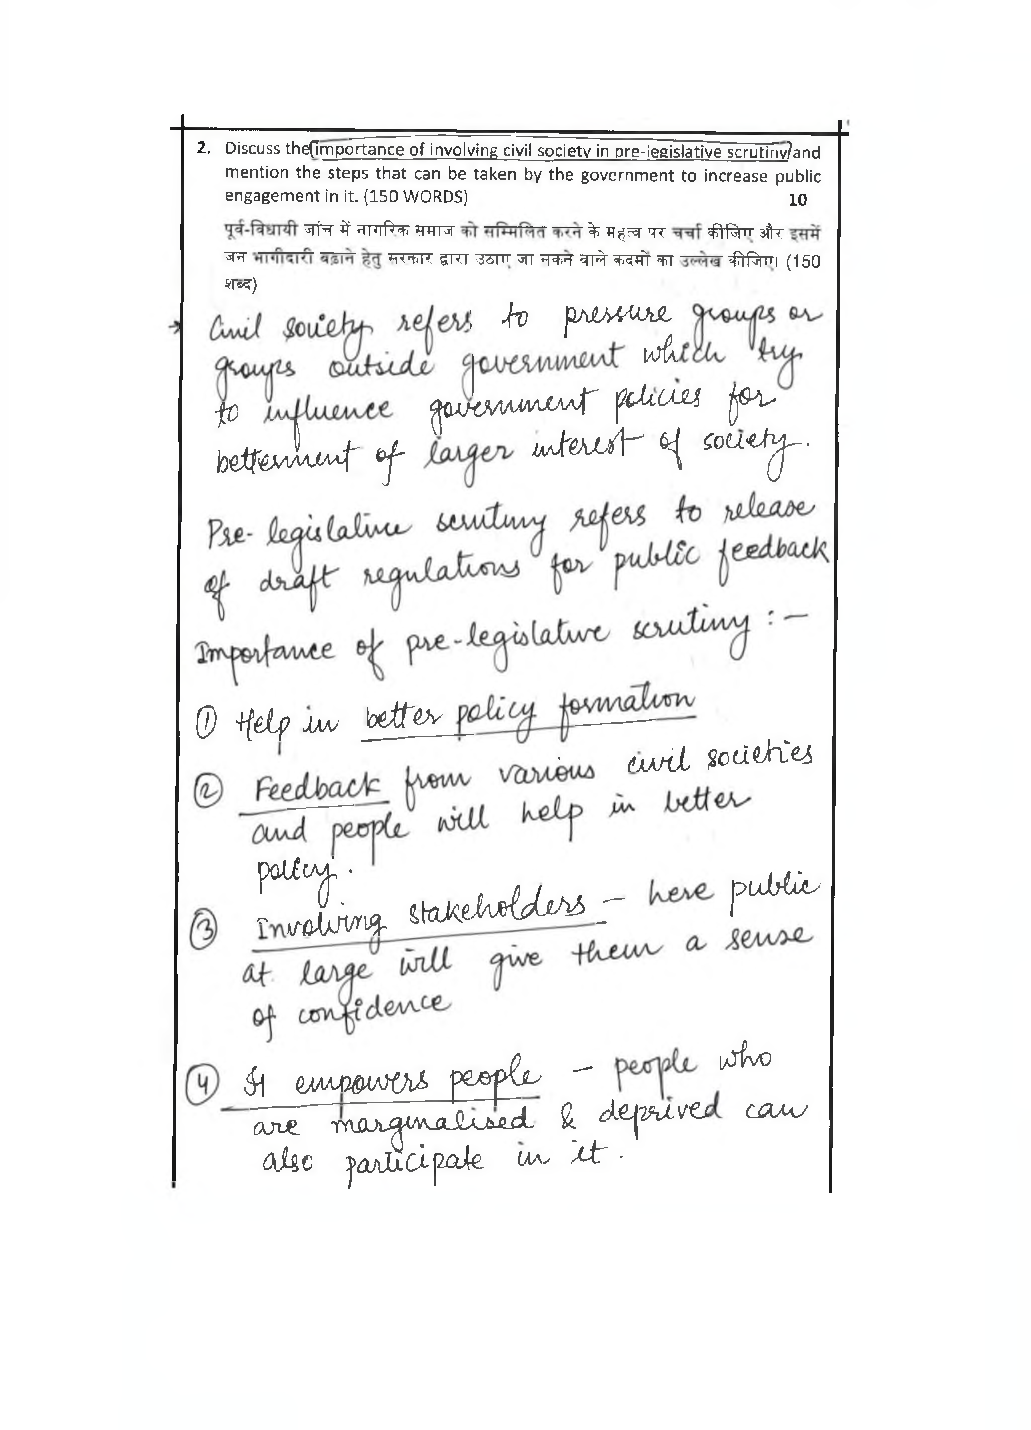 2. Discuss the importance of involving civil society in pre-legislative scrutiny and
mention the steps that can be taken by the government to increase public
engagement in it. (150 WORDS) 10
पूर्व-विधायी जांच में नागरिक समाज को सम्मिलित करने के महत्व पर चर्चा कीजिए और इसमें
जन भागीदारी बढ़ाने हेतु सरकार द्वारा उठाए जा सकने वाले कदमों का उल्लेख कीजिए। (150
शब्द)
→ Civil society refers to pressure groups or
groups outside government which try
to influence government policies for
betterment of larger interest of society.
Pre-legislative scrutiny refers to release
of draft regulations for public feedback
Importance of pre-legislative scrutiny :-
① Help in better policy formation
② Feedback from various civil societies
and people will help in better
policy.
③ Involving stakeholders - here public
at large will give them a sense
of confidence
④ It empowers people - people who
are marginalised & deprived can
also participate in it.